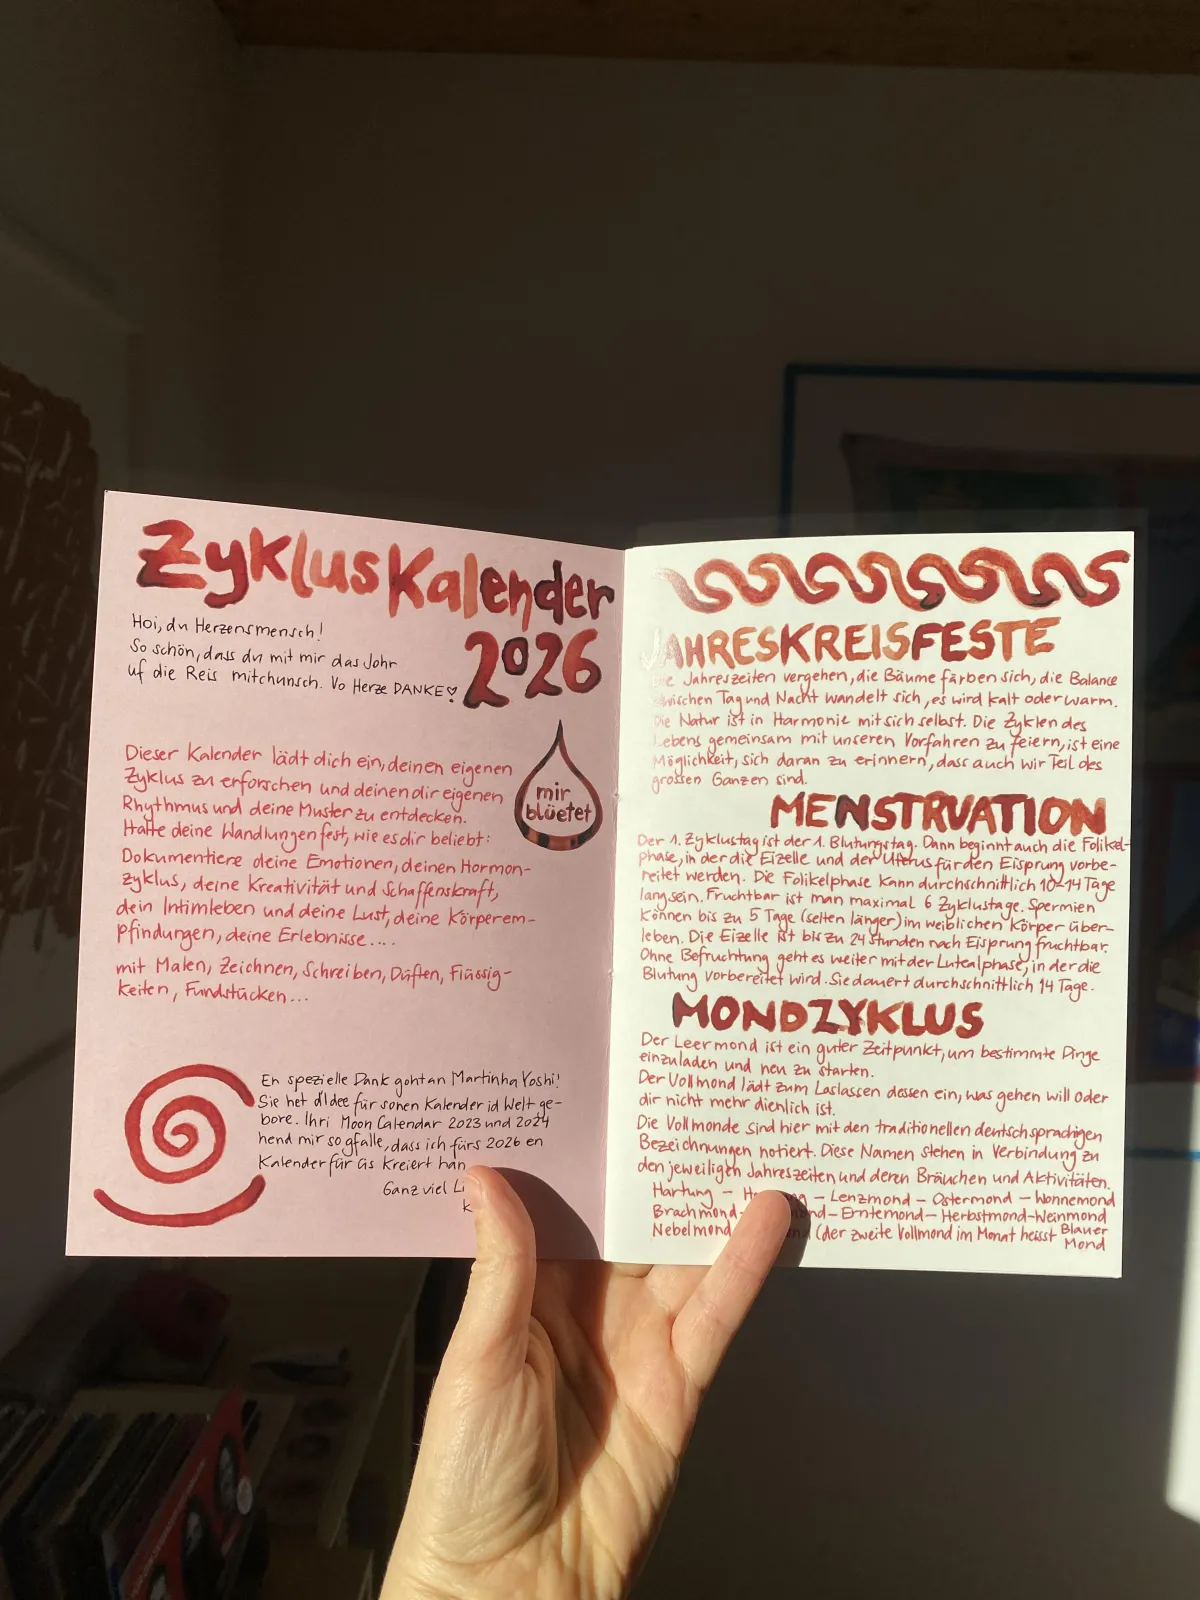 ZyklusKalender
2026
Hoi, du Herzensmensch!
So schön, dass du mit mir das Johr
uf die Reis mitchunsch. Vo Herze DANKE♡
Dieser Kalender lädt dich ein, deinen eigenen
Zyklus zu erforschen und deinen dir eigenen
Rhythmus und deine Muster zu entdecken.
Halte deine Wandlungen fest, wie es dir beliebt:
Dokumentiere deine Emotionen, deinen Hormon-
zyklus, deine Kreativität und Schaffenskraft,
dein Intimleben und deine Lust, deine Körperem-
pfindungen, deine Erlebnisse....
mit Malen, Zeichnen, Schreiben, Düften, Flüssig-
keiten, Fundstücken...
mir
blüetet
En spezielle Dank goht an Martinha Yoshi!
Sie het d'Idee für sonen Kalender id Welt ge-
bore. Ihri Moon Calendar 2023 und 2024
hend mir so gfalle, dass ich fürs 2026 en
Kalender für üs kreiert han
Ganz viel
JAHRESKREISFESTE
Die Jahreszeiten vergehen, die Bäume färben sich, die Balance
zwischen Tag und Nacht wandelt sich, es wird kalt oder warm.
Die Natur ist in Harmonie mit sich selbst. Die Zyklen des
Lebens gemeinsam mit unseren Vorfahren zu feiern, ist eine
Möglichkeit, sich daran zu erinnern, dass auch wir Teil des
grossen Ganzen sind.
MENSTRUATION
Der 1. Zyklustag ist der 1. Blutungstag. Dann beginnt auch die Folikel-
phase, in der die Eizelle und der Uterus für den Eisprung vorbe-
reitet werden. Die Folikelphase kann durchschnittlich 10-14 Tage
lang sein. Fruchtbar ist man maximal 6 Zyklustage. Spermien
können bis zu 5 Tage (selten länger) im weiblichen Körper über-
leben. Die Eizelle ist bis zu 24 Stunden nach Eisprung fruchtbar.
Ohne Befruchtung geht es weiter mit der Lutealphase, in der die
Blutung vorbereitet wird. Sie dauert durchschnittlich 14 Tage.
MONDZYKLUS
Der Leermond ist ein guter Zeitpunkt, um bestimmte Dinge
einzuladen und neu zu starten.
Der Vollmond lädt zum Loslassen dessen ein, was gehen will oder
dir nicht mehr dienlich ist.
Die Vollmonde sind hier mit den traditionellen deutschsprachigen
Bezeichnungen notiert. Diese Namen stehen in Verbindung zu
den jeweiligen Jahreszeiten und deren Bräuchen und Aktivitäten.
Hartung – – Lenzmond – Ostermond – Wonnemond
Brachmond – – Erntemond – Herbstmond – Weinmond
Nebelmond (der zweite Vollmond im Monat heisst Blauer
Mond